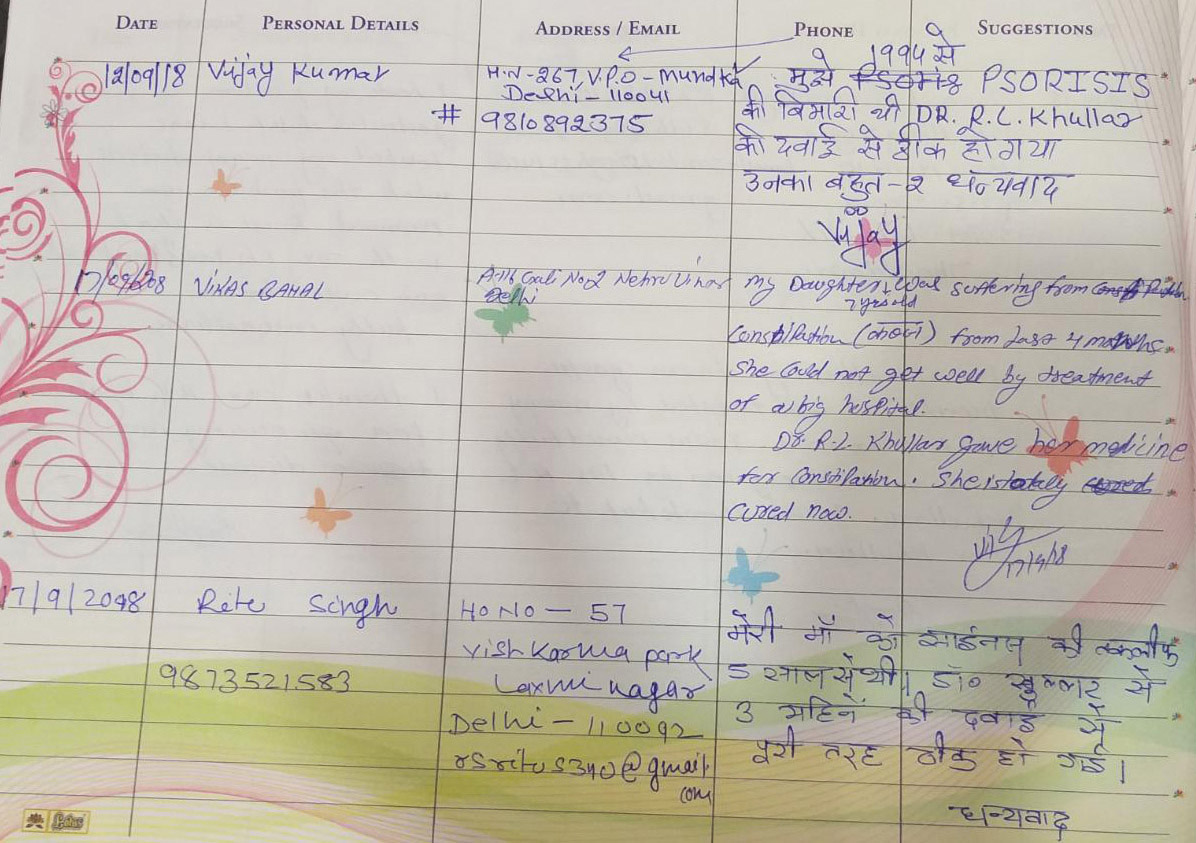 DATE PERSONAL DETAILS ADDRESS / EMAIL PHONE SUGGESTIONS
12/09/18 Vijay Kumar H.N-267, V.P.O-Mundka
Delhi-110041
# 9810892375
1994 से
मुझे PSORISIS
की बिमारी थी DR. R.L. Khullar
की दवाई से ठीक हो गया
उनका बहुत-२ धन्यवाद
Vijay
17/09/208 VIKAS BAHAL A-116 Gali No 2 Nehru Vihar
Delhi
My Daughter was suffering from
7 years old
Constipation (कब्ज) from last 4 months.
She could not get well by treatment
of a big hospital.
Dr. R.L. Khullar gave her medicine
for Constipation. She is totaly
cured now.
17/9/18
17/9/2018 Ritu Singh HO NO - 57
Vishkarma park
Laxmi nagar
9873521583
Delhi - 110092
rsritu5340@gmail.
com
मेरी माँ को साईनस की तकलीफ
5 साल से थी। डॉ० खुल्लर से
3 महिने की दवाई से
पूरी तरह ठीक हो गई।
धन्यवाद
Lotus